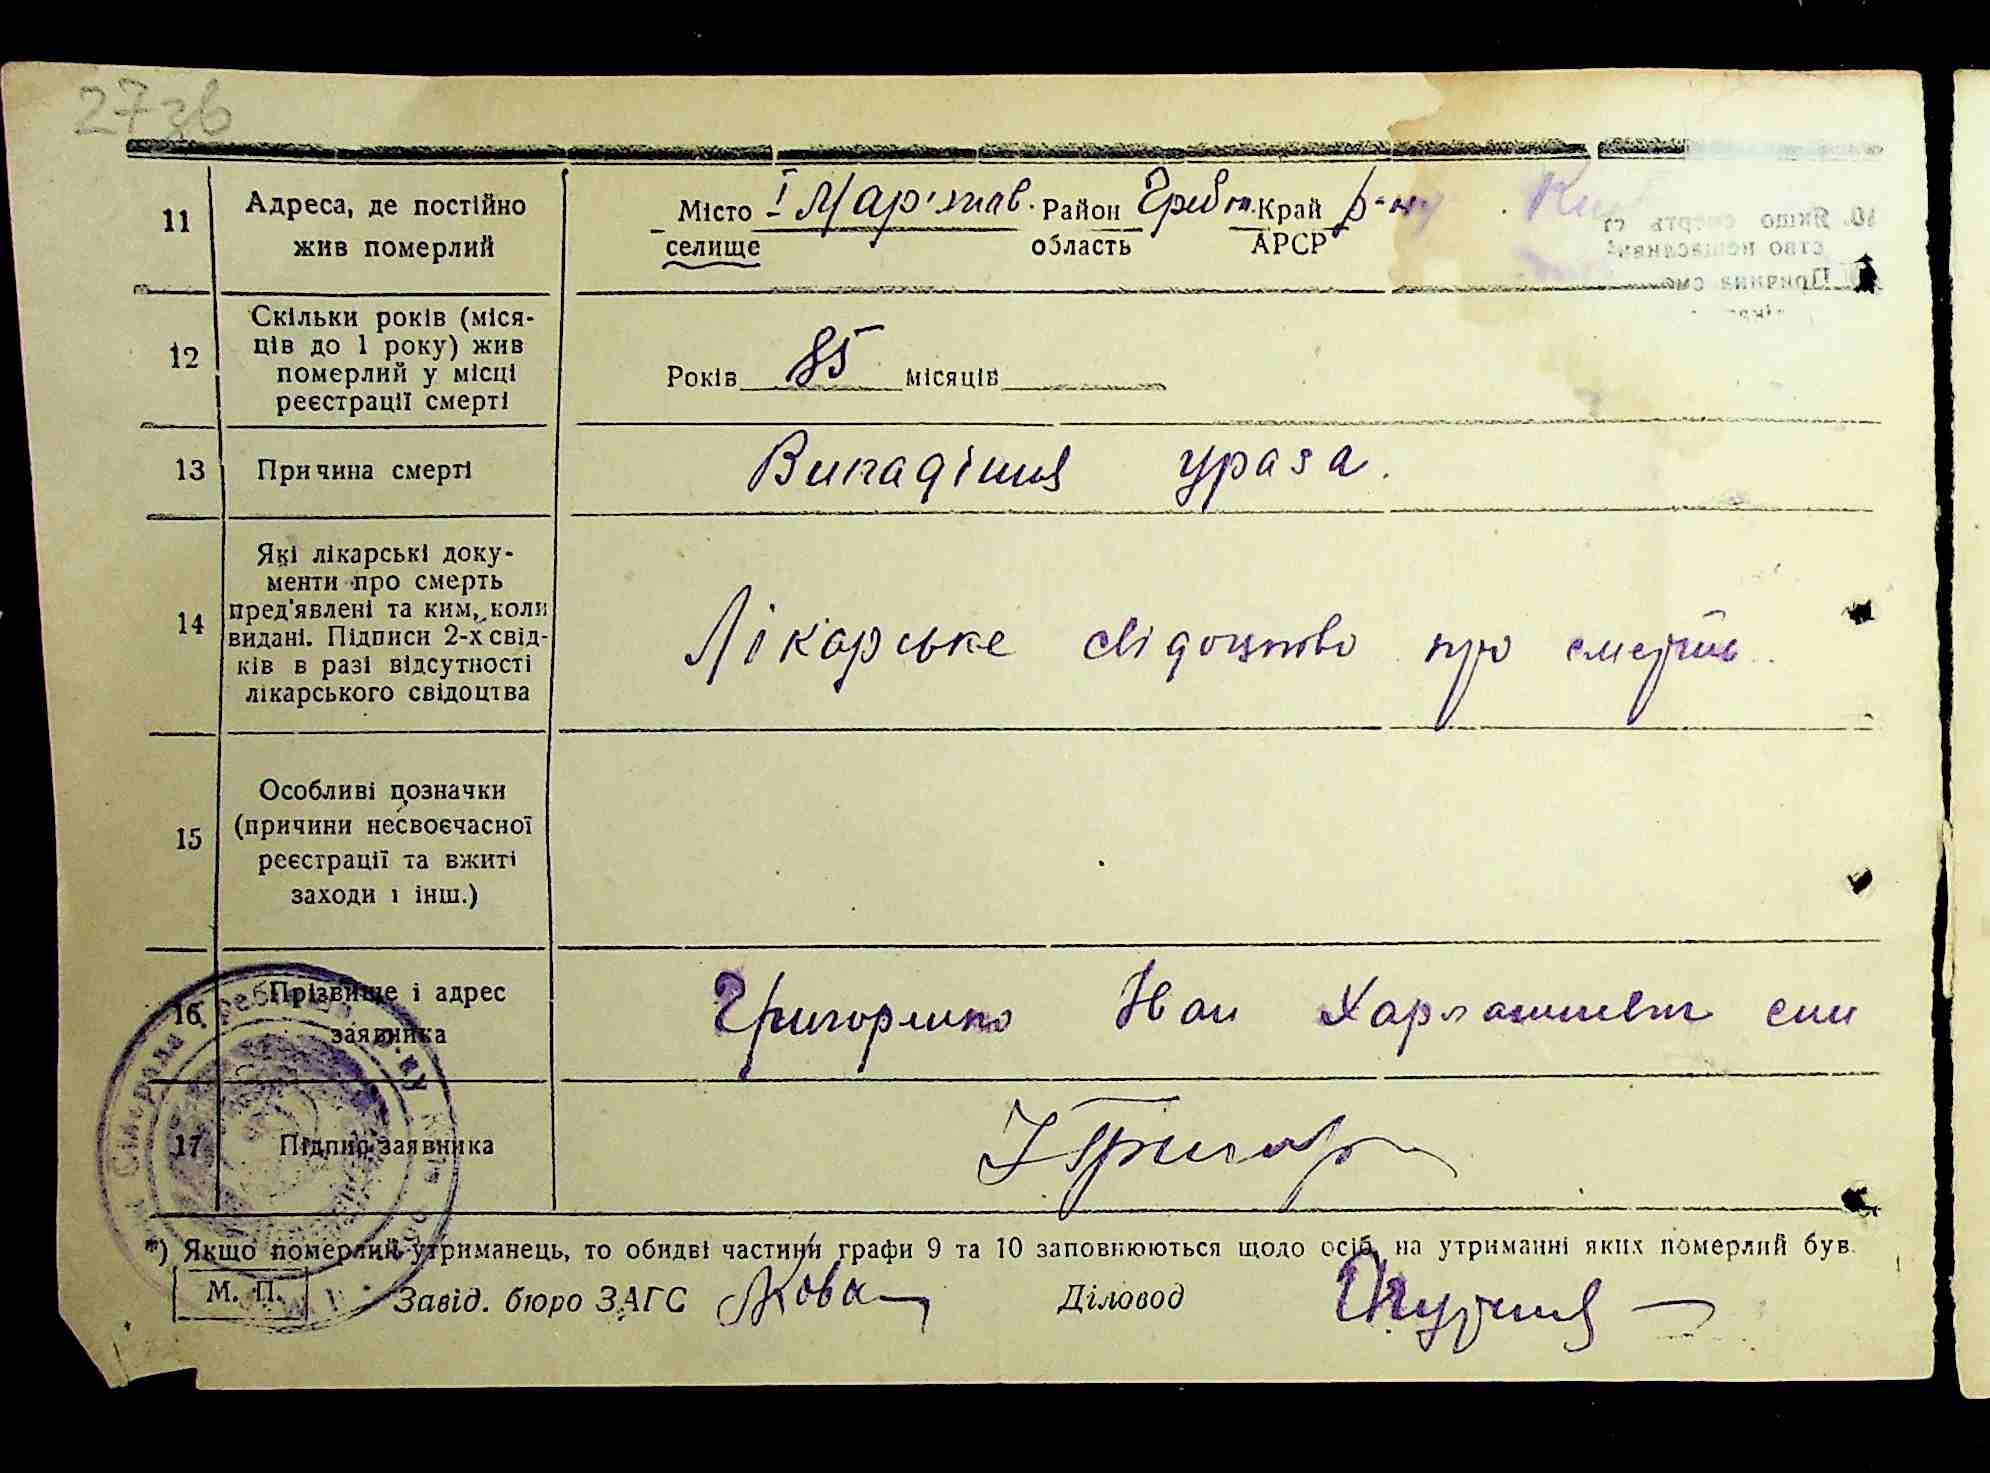 27зв
11 Адреса, де постійно жив померлий
Місто селище І Мар'янів. Район область Греб. Край АРСР р-ну
12 Скільки років (міся-
ців до 1 року) жив
померлий у місці
реєстрації смерті
Років 85 місяців
13 Причина смерті
Випадіння ураза.
14 Які лікарські доку-
менти про смерть
пред'явлені та ким, коли
видані. Підписи 2-х свід-
ків в разі відсутності
лікарського свідоцтва
Лікарське свідоцтво про смерть.
15 Особливі позначки
(причини несвоєчасної
реєстрації та вжиті
заходи і інш.)
16 Прізвище і адрес
заявника
Григоренко Іван син
17 Підпис заявника
*) Якщо померлий утриманець, то обидві частини графи 9 та 10 заповнюються щодо осіб, на утриманні яких померлий був.
М. П. Завід. бюро ЗАГС Діловод